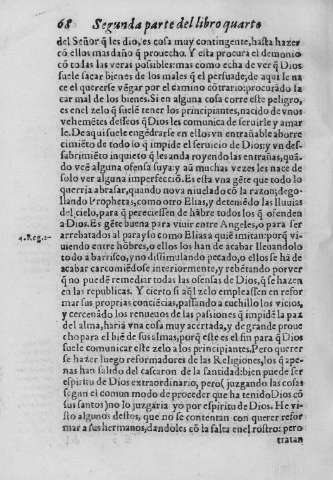 68 Segunda parte del libro quarto
del Señor q̃ les dio, es cosa muy contingente, hasta hazer
cõ ellos mas daño q̃ prouecho. Y esta procura el demonio
cõ todas las veras possibles: mas como echa de ver q̃ Dios
suele sacar bienes de los males q̃ el persuade, de aqui le na
ce el quererse vẽgar por el camino cõtrario: procurãdo sa
car mal de los bienes. Si en alguna cosa corre este peligro,
es en el zelo q̃ suele tener los principiantes, nacido de vnos
vehemẽtes desseos q̃ Dios les comunica de seruirle y amar
le. De aqui suele engẽdrarse en ellos vn entrañable aborre
cimiẽto de todo lo q̃ impide el seruicio de Dios: y vn des-
sabrimiẽto inquieto q̃ les anda royendo las entrañas, quã
do veẽ alguna ofensa suya: y aũ muchas vezes les nace de
solo ver alguna imperfecciõ. Es esta vna gẽte que todo lo
querria abrasar, quando nova niuelado cõ la razon; dego-
llando Prophetas, como otro Elias, y deteniẽdo las lluuias
del cielo, para q̃ pereciessen de hãbre todos los q̃ ofenden
a Dios. Es gẽte buena para viuir entre Angeles, o para ser
arrebatados al parayso como Elias a quiẽ imitan: porq̃ vi-
4. Reg. 2. uiendo entre hõbres, o ellos los han de acabar lleuandolo
todo a barrisco, y no dissimulando pecado, o ellos se hã de
acabar carcomiẽdose interiormente, y rebẽtando porver
q̃ no puedẽ remediar todas las ofensas de Dios, q̃ se hazen
en las republicas. Y cierto si aq̃l zelo empleassen en refor
mar sus proprias conciẽcias, passando a cuchillo los vicios,
y cercenãdo los renueuos de las passiones q̃ impidẽ la paz
del alma, haria vna cosa muy acertada, y de grande proue
cho para el biẽ de sus almas, porq̃ este es el fin para q̃ Dios
suele comunicar este zelo a los principiantes. Pero querer
se hazer luego reformadores de las Religiones, los q̃ ape-
nas han salido del cascaron de la santidad: bien puede ser
espiritu de Dios extraordinario, pero (juzgando las cosas
segun el comun modo de proceder que ha tenido Dios cõ
sus santos) no lo juzgaria yo por espiritu de Dios. He vi-
sto algunos destos, que no se contentan con querer refor
mar a sus hermanos, dandoles cõ la falta en el rostro: pero
tratan